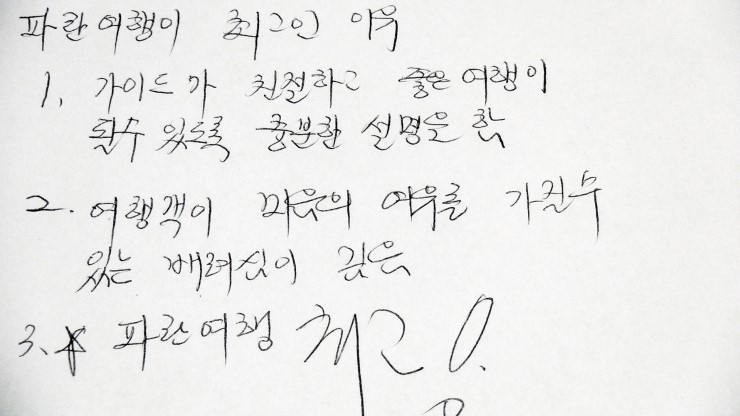 파란여행이 최고인 이유
1. 가이드가 친절하고 좋은 여행이
될수 있도록 충분한 설명을 함
2. 여행객이 마음의 여유를 가질수
있는 배려심이 깊음
3. 파란여행 최고